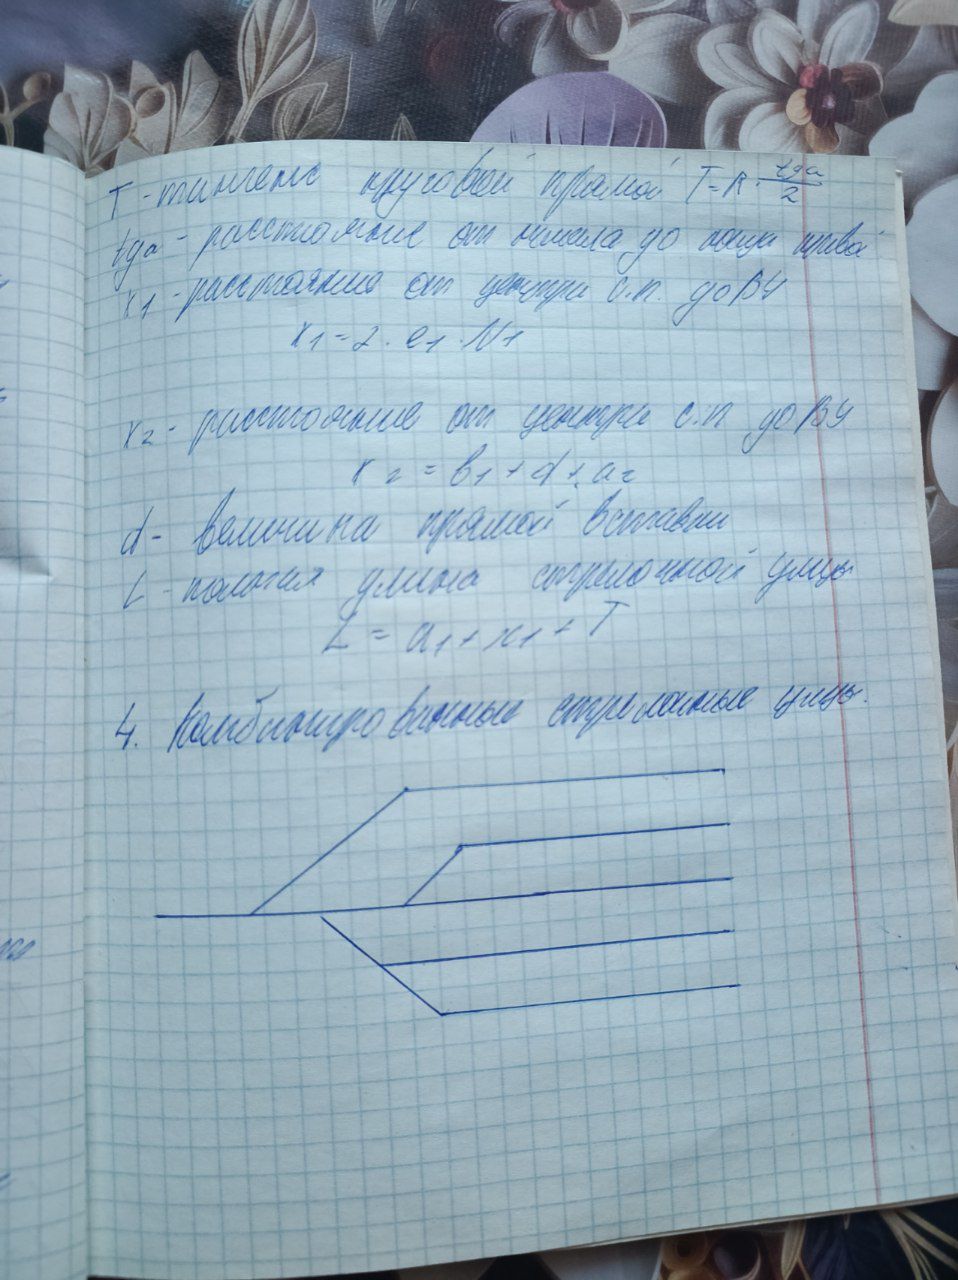 T - тангенс круговой прямой T = R · tgα/2
tgα - расстояние от начала до конца кривой
x1 - расстояние от центра с.п. до ВУ
x1 = 2 · e1 · N1
x2 - расстояние от центра с.п до ВУ
x2 = b1 + d + a2
d - величина прямой вставки
L - полная длина стрелочной улицы
L = a1 + x1 + T
4. Комбинированные стрелочные улицы.